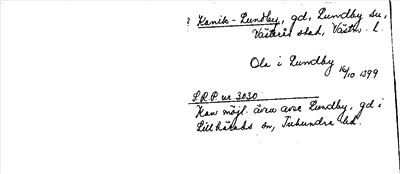 ? Kanik-Lundby, gd, Lundby sn,
Västerås stad, Västm. l.
Ola i Lundby
16/10 1399
SRP nr 3030
Kan möjl. även avse Lundby, gd i
Lillhärads sn, Tuhundra hd.